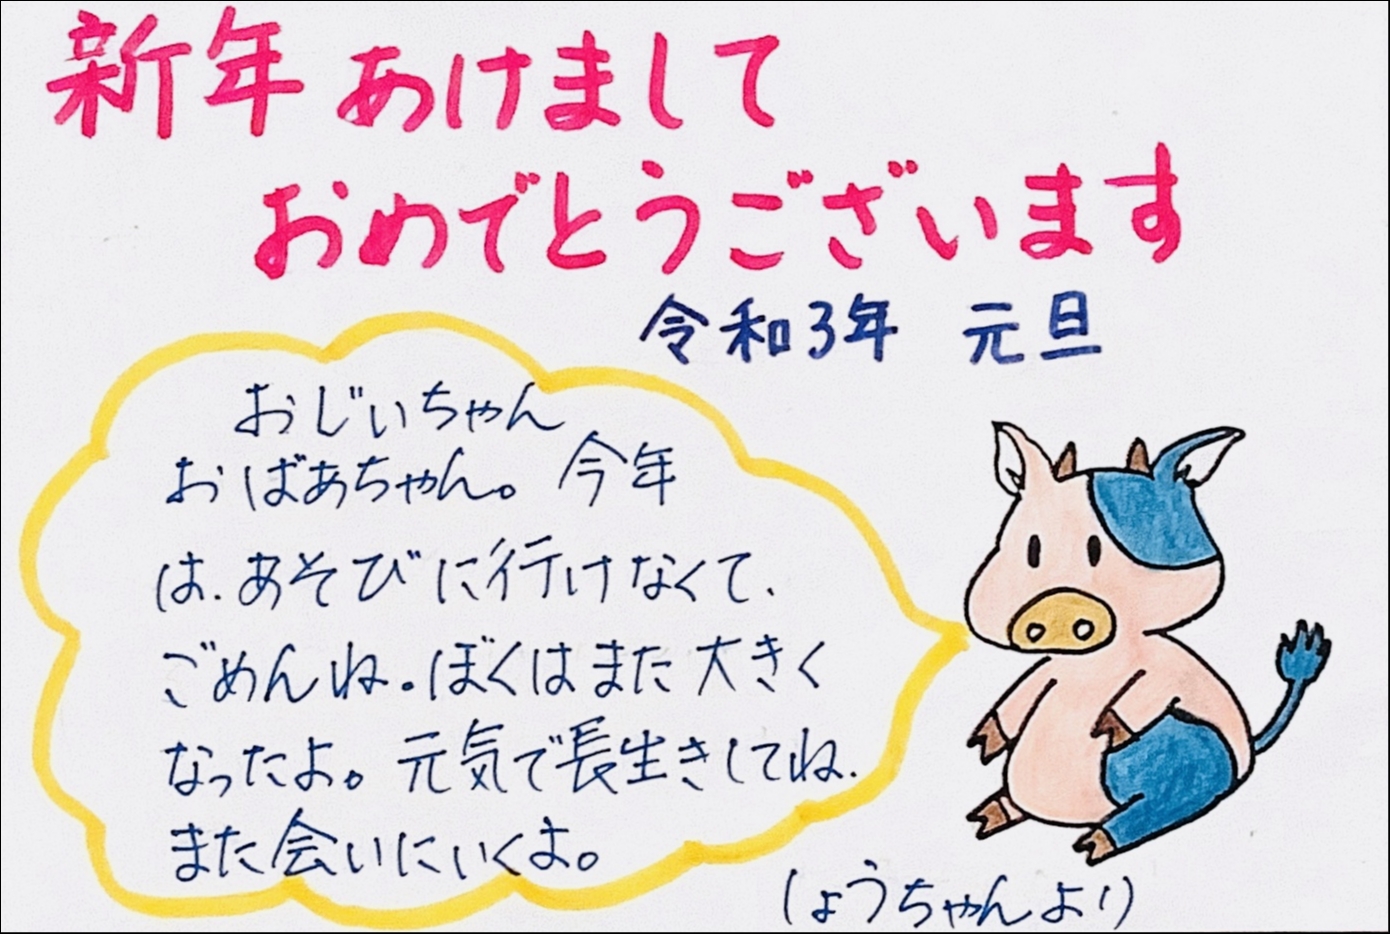 新年 あけまして
おめでとうございます
令和3年 元旦
おじぃちゃん
おばあちゃん。今年
は、あそびに行けなくて、
ごめんね。ぼくはまた大きく
なったよ。元気で長生きしてね、
また会いにいくよ。
しょうちゃんより